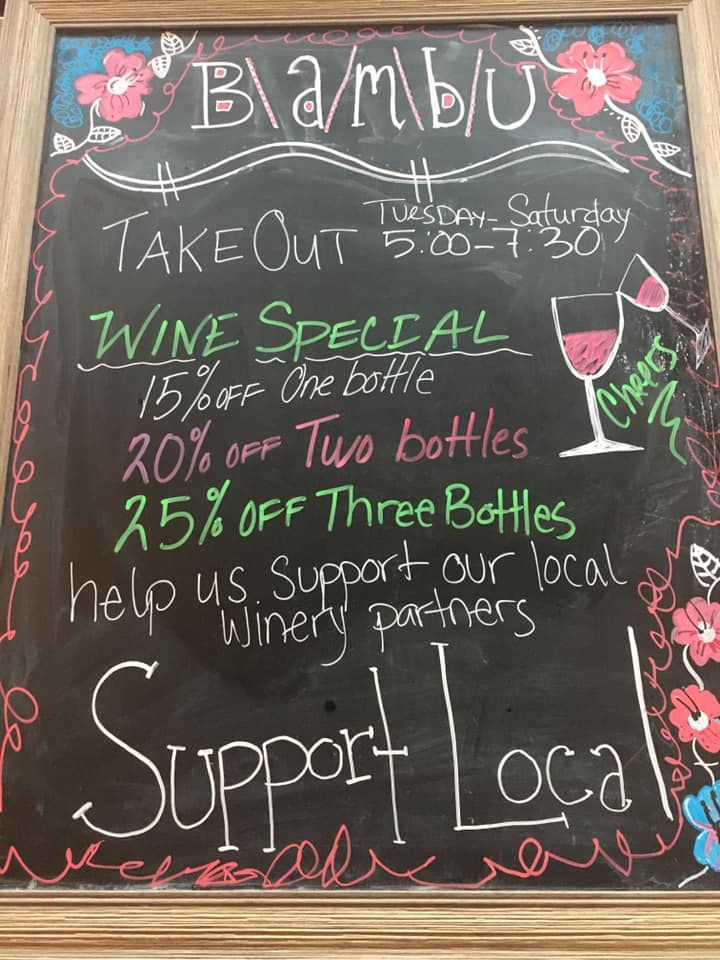 B\a/m\b/u
TAKE OUT TUESDAY - Saturday
5:00-7:30
WINE SPECIAL
15% OFF One bottle
20% OFF Two bottles
25% OFF Three Bottles
Cheers
help us support our local
Winery partners
Support Local